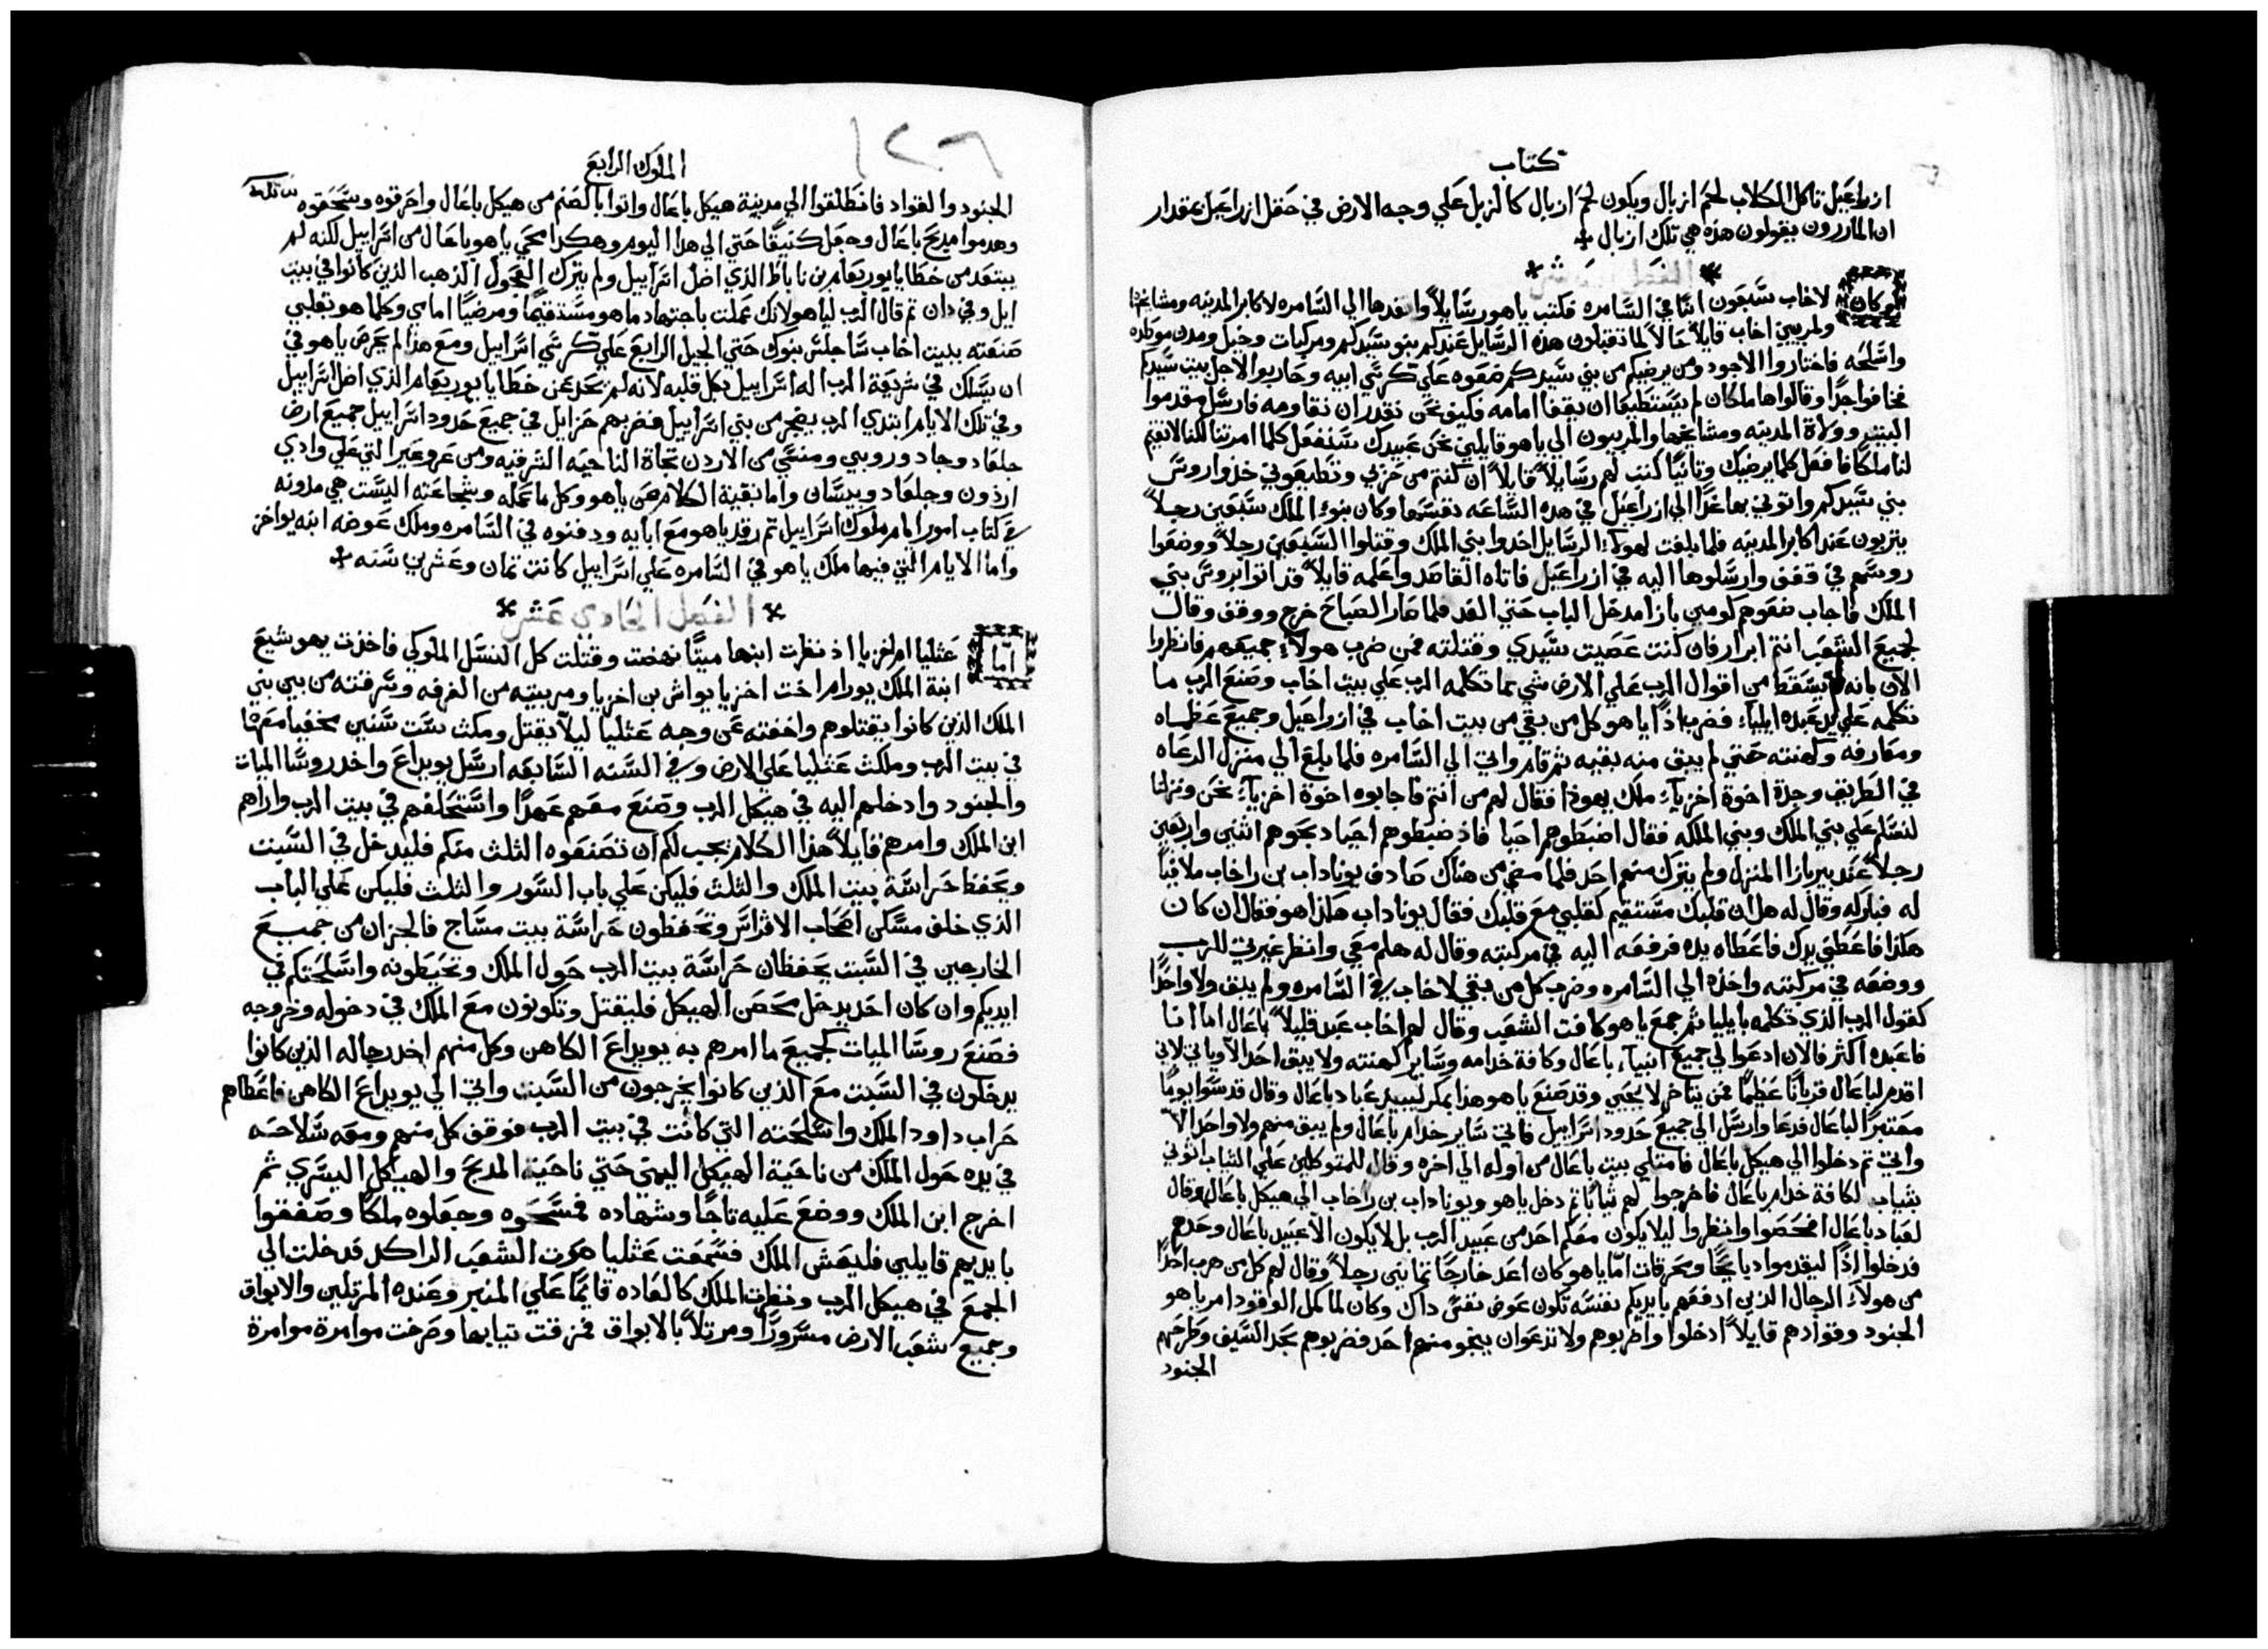 كتاب
ازراعيل تاكل الكلاب لحم ازبال ويكون لحم ازبال كالزبل علي وجه الارض في حقل ازراعيل بمقدار
ان المارون يقولون هذه هي تلك ازبال
وكان لاخاب سبعون ابنا في السامره فكتب ياهو رسايلاً وانفدها الي السامره لاكابر المدينه ومشايخها
ولمربيي اخاب قايلاً حالاً لما تقبلون هذه الرسايل عندكم بنو سيدكم ومركبات وخيل ومدن موطده
واسلحه فاختاروا الاجود ومن يرضيكم من بني سيدكم ضعوه علي كرسي ابيه وحاربوا لاجل بيت سيدكم
فخافوا جداً وقالوا هاملكان لم يستطيعا ان يقفا امامه فكيف نحن نقدر ان نقاومه فارسل مقدموا
البيت وولاة المدينه ومشايخها والمربيون الي ياهو قايلين نحن عبيدك سنفعل كلما امرتنا لكننا لا نقيم
لنا ملكا فافعل كلما يرضيك وثانيًا كتب لهم رسايلاً قايلاً ان كنتم من حزبي وتطيعوني خذوا روس
بني سيدكم واتوني بها غداً الي ازراعيل في هده الساعه نفسها وكان بنو الملك سبعين رجلاً
يتربون عند اكابر المدينه فلما بلغت لهولاء الرسايل اخدوا بني الملك وقتلوا السبعين رجلاً ووضعوا
روسهم في قفف وارسلوها اليه في ازراعيل فاتاه القاصد واعلمه قايلاً قد اتوا بروس بني
الملك فاجاب ضعوهم كومين بازا مدخل الباب حتي الغد فلما صار الصباح خرج ووقف وقال
لجميع الشعب انتم ابرار فان كنت عصيت سيدي وقتلته فمن ضرب هولاء جميعهم فانظروا
الان بانه لم يسقط من اقوال الرب علي الارض شي مما تكلمه الرب علي بيت اخاب وصنع الرب ما
تكلمه علي يد عبده ايلياء فضرب اذاً ياهو كل من بقي من بيت اخاب في ازراعيل وجميع عظماه
ومعارفه وكهنته حتي لم يبق منه بقيه ثم قام واتي الي السامره فلما بلغ الي منزل الرعاه
في الطريق وجد اخوة اخزياء ملك يهوذا فقال لهم من انتم فاجابوه اخوة اخزياء نحن ونزلنا
لنسلم علي بني الملك وبني الملكه فقال اضبطوهم احيا فاذ ضبطوهم احياد بحوهم اثنين واربعين
رجلاً عند بير بازا المنزل ولم يترك منهم احد فلما مضي من هناك صادف يوناداب بن راخاب ملاقيًا
له فباركه وقال له هل ان قلبك مستقيم كقلبي مع قلبك فقال يوناداب هكذا هو فقال ان كان
هكذا فاعطني يدك فاعطاه يده فرفعه اليه في مركبته وقال له هلم معي وانظر غيرتي للرب
ووضعه في مركبته واخذه الي السامره وضرب كل من بقي لاخاب في السامره ولم يبق ولا واحداً
كقول الرب الذي تكلمه بايليا ثم جمع ياهو كافت الشعب وقال لهم اخاب عبد قليلاً باعال اما انا
فاعبده اكثر فالان ادعوا لي جميع انبياء باعال وكافة خدامه وساير كهنته ولا يبق احد الا وياتي لاني
اقدم لباعال قربانًا عظيمًا فمن يتاخر لا يحيي وقد صنع ياهو هذا بمكر ليبيد عباد باعال وقال قدسوا يومًا
معتبراً لباعال فدعا وارسل الي جميع حدود اسراييل فاتي ساير خدام باعال ولم يبق منهم ولا واحد الاّ
واتي ثم دخلوا الي هيكل باعال فامتلي بيت باعال من اوله الي اخره وقال للمتوكلين علي الثياب اتوني
بثياب لكافة خدام باعال فاخرجوا لهم ثيابًا ثم دخل ياهو ويوناداب بن راخاب الي هيكل باعال وقال
لعباد باعال افحصوا وانظروا ليلا يكون معكم احد من عبيد الرب بل لا يكون الا عبيد باعال وحدهم
فدخلوا اذاً ليقدموا دبايحًا ومحرقات اما ياهو كان اعد خارجًا ثمانين رجلاً وقال لهم كل من هرب احداً
من هولاء الرجال الذين ادفعهم بايديكم نفسه تكون عوض نفس داك وكان لما كمل الوقود امر ياهو
الجنود وقوادهم قايلاً ادخلوا واضربوهم ولا تدعوا ان ينجو منهم احد فضربوهم بحد السيف وطرحهم
الجنود
١٢٦
الملوك الرابع
الجنود والقواد فانطلقوا الي مدينة هيكل باعال واتوا بالصنم من هيكل باعال واحرقوه وسحقوه
وهدموا مدبح باعال وجعل كنيفًا حتي الي هدا اليوم وهكذا محي ياهو باعال من اسراييل لكنه لم
يبتعد من خطايا يوربعام بن ناباط الذي اضل اسراييل ولم يترك العجول الذهب الذين كانوا في بيت
ايل وفي دان ثم قال الرب لياهو لانك عملت باجتهاد ما هو مستقيمًا ومرضيًا امامي وكلما هو بقلبي
صنعته ببيت اخاب ساجلس بنوك حتي الجيل الرابع علي كرسي اسراييل ومع هذا لم يحرص ياهو في
ان يسلك في شريعة الرب اله اسراييل بكل قلبه لانه لم يحد عن خطايا يوربعام الذي اضل اسراييل
وفي تلك الايام ابتدي الرب يضجر من بني اسراييل فضربهم حزايل في جميع حدود اسراييل جميع ارض
جلعاد وجاد وروبي ومنسي من الاردن تجاة الناحيه الشرقيه ومن عروعير التي علي وادي
ارذون وجلعاد وبيسان واما بقية الكلام عن ياهو وكل ما عمله وشجاعته اليست هي مدونه
في كتاب امور ايام ملوك اسراييل ثم رقد ياهو مع ابايه ودفنوه في السامره وملك عوضه ابنه يواخز
واما الايام التي فيها ملك ياهو في السامره علي اسراييل كانت ثمان وعشرين سنه
الفصل الحادي عشر
اما عثليا ام اخزيا اذ نظرت ابنها ميتًا نهضت وقتلت كل النسل الملوكي فاخذت يهوشبع
ابنة الملك يورام اخت اخزيا يواش بن اخزيا ومربيته من الغرفه وسرقته من بين بني
الملك الذين كانوا يقتلوهم واخفته عن وجه عثليا ليلاّ يقتل ومكث ست سنين مخفيا معها
في بيت الرب وملكت عثليا علي الارض وفي السنه السابعه ارسل يويداع واخد روسا الميات
والجنود وادخلهم اليه في هيكل الرب وصنع معهم عهداً واستحلفهم في بيت الرب واراهم
ابن الملك وامرهم قايلاً هذا الكلام يجب لكم ان تصنعوه الثلث منكم فليدخل في السبت
ويحفظ حراسة بيت الملك والثلث فليكن علي باب السور والثلث فليكن علي الباب
الذي خلف مسكن اصحاب الاتراس وتحفظون حراسة بيت مساج فالجزان من جميع
الخارجين في السبت يحفظان حراسة بيت الرب حول الملك وتحيطونه واسلحتكم في
ايديكم وان كان احد يدخل محصن الهيكل فليقتل وتكونون مع الملك في دخوله وخروجه
فصنع روسا الميات كجميع ما امرهم به يويداع الكاهن وكل منهم اخد رجاله الذين كانوا
يدخلون في السبت مع الذين كانوا يخرجون من السبت واتي الي يويداع الكاهن فاعطاهم
حراب داود الملك واسلحته التي كانت في بيت الرب فوقف كل منهم ومعه سلاحه
في يده حول الملك من ناحية الهيكل اليمني حتي ناحية المدبح والهيكل اليسري ثم
اخرج ابن الملك ووضع عليه تاجًا وشهاده فمسحوه وجعلوه ملكا وصفقوا
بايديهم قايلين فليعش الملك فسمعت عثليا صوت الشعب الراكد فدخلت الي
المجمع في هيكل الرب ونظرت الملك كالعاده قايمًا علي المنبر وعنده المرتلين والابواق
وجميع شعب الارض مسروراً ومرتلاً بالابواق فمزقت ثيابها وصرخت موامرة موامرة